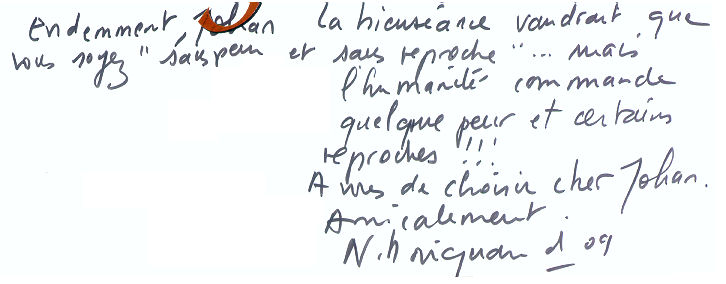 Endemment, Johan la bienséance voudrait que
vous soyez "sans peur et sans reproche"... mais
l'humanité commande
quelque peur et certains
reproches !!!
A vous de choisir cher Johan.
Amicalement.
09